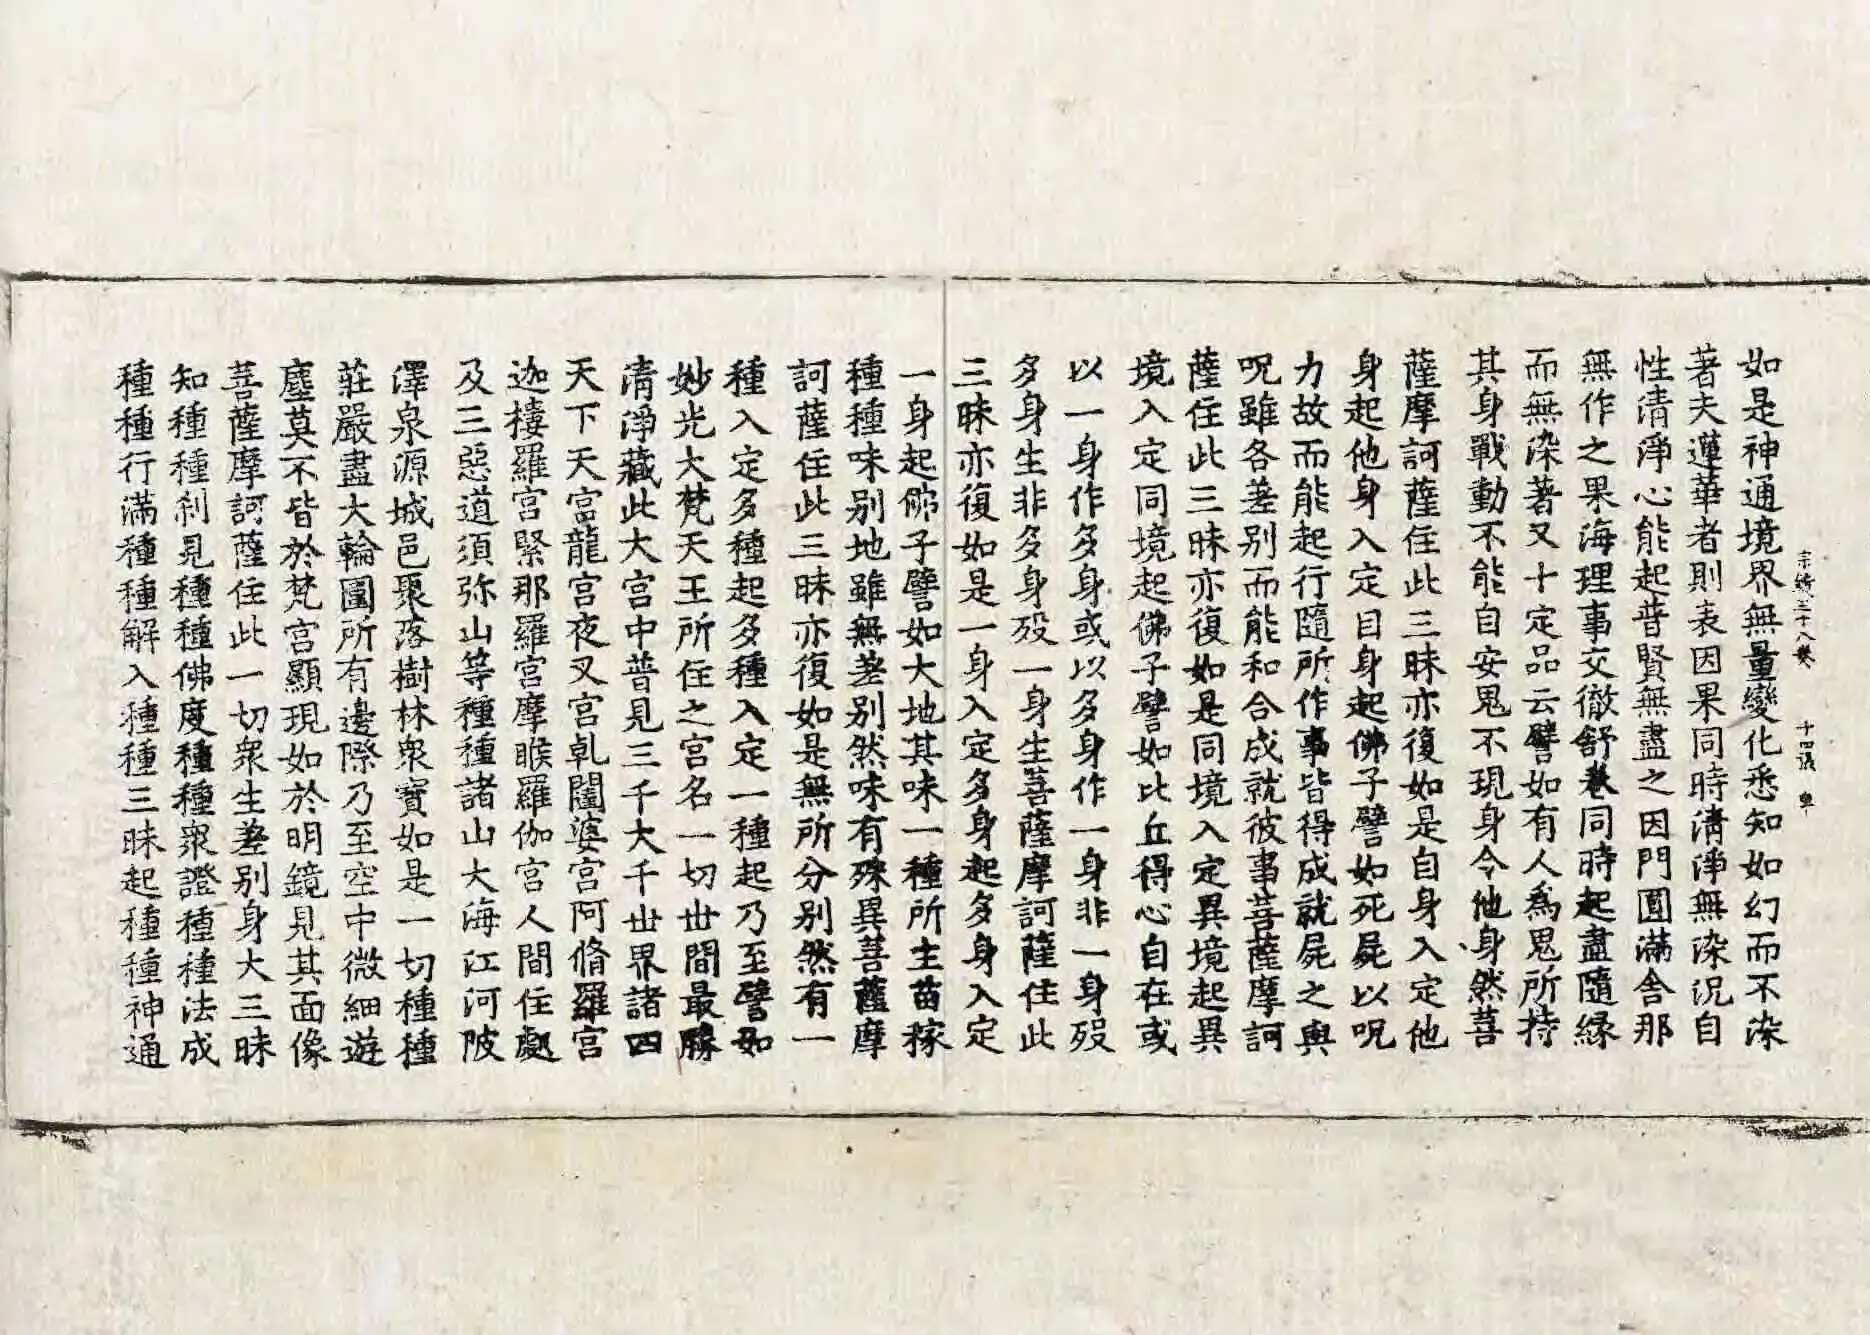 如是神通境界無量變化悉知如幻而不染
著夫蓮華者則表因果同時清淨無染況自
性清淨心能起普賢無盡之因門圓滿舍那
無作之果海理事交徹舒卷同時起盡隨緣
而無染著又十定品云譬如有人為鬼所持
其身戰動不能自安鬼不現身令他身然菩
薩摩訶薩住此三昧亦復如是自身入定他
身起他身入定自身起佛子譬如死屍以呪
力故而能起行隨所作事皆得成就屍之與
呪雖各差別而能和合成就彼事菩薩摩訶
薩住此三昧亦復如是同境入定異境起異
境入定同境起佛子譬如比丘得心自在或
以一身作多身或以多身作一身非一身歿
多身生非多身歿一身生菩薩摩訶薩住此
三昧亦復如是一身入定多身起多身入定
一身起佛子譬如大地其味一種所生苗稼
種種味別地雖無差別然味有殊異菩薩摩
訶薩住此三昧亦復如是無所分別然有一
種入定多種起多種入定一種起乃至譬如
妙光大梵天王所住之宮名一切世間最勝
清淨藏此大宮中普見三千大千世界諸四
天下天宮龍宮夜叉宮乹闥婆宮阿脩羅宮
迦樓羅宮緊那羅宮摩睺羅伽宮人間住處
及三惡道須弥山等種種諸山大海江河陂
澤泉源城邑聚落樹林眾寶如是一切種種
莊嚴盡大輪圍所有邊際乃至空中微細遊
塵莫不皆於梵宮顯現如於明鏡見其面像
菩薩摩訶薩住此一切眾生差別身大三昧
知種種剎見種種佛度種種眾證種種法成
種種行滿種種解入種種三昧起種種神通